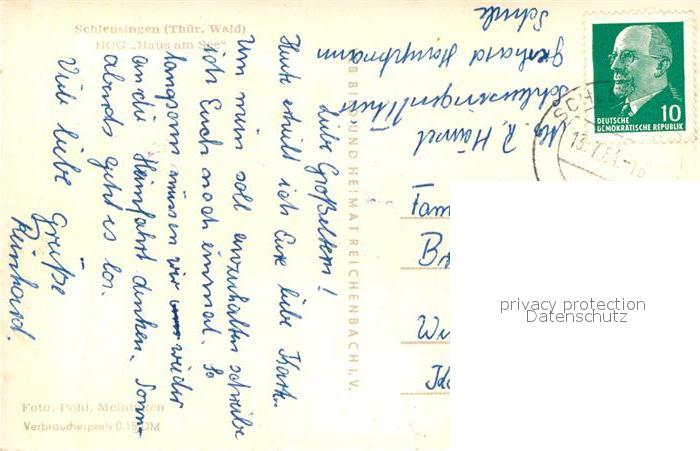 Schleusingen (Thür. Wald)
HOG „Haus am See"
Liebe Großeltern!
Heute erhielt ich Eure liebe Karte.
Um mein soll einzuhalten schreibe
ich Euch noch einmal. So
langsam müssen wir wieder
an die Heimfahrt denken. Sonn-
abends geht es los.
Viele liebe Grüße
Reinhard.
Foto: Pohl, Meiningen
Verbraucherpreis 0,15 DM
BILD UND HEIMAT REICHENBACH I. V.
Schleusingen/Thür
Gerhard Hauptmann
Schule
10
DEUTSCHE
DEMOKRATISCHE REPUBLIK
SCHLEU
Fam
Br
privacy protection
Datenschutz